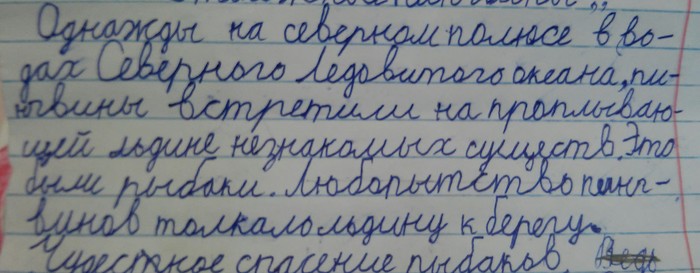 Однажды на северном полюсе в во-
дах Северного Ледовитого океана, пи-
нгвины встретили на проплываю-
щей льдине незнакомых существ. Это
были рыбаки. Любопытство пинг-
винов толкало льдину к берегу.
Чудестное спасение рыбаков